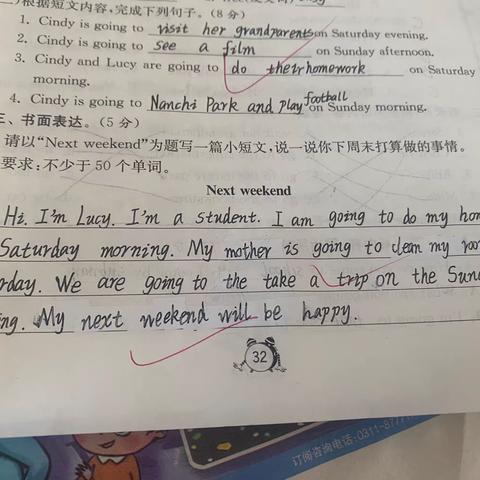 根据短文内容,完成下列句子。(8分)
1. Cindy is going to visit her grandparents on Saturday evening.
2. Cindy is going to see a film on Sunday afternoon.
3. Cindy and Lucy are going to do their homework on Saturday
morning.
4. Cindy is going to Nanchi Park and play football on Sunday morning.
三、书面表达。(5分)
请以“Next weekend”为题写一篇小短文,说一说你下周末打算做的事情。
要求:不少于50个单词。
Next weekend
Hi. I'm Lucy. I'm a student. I am going to do my hom
Saturday morning. My mother is going to clean my roo
rday. We are going to the take a trip on the Sun
ing. My next weekend will be happy.
32
订阅咨询电话:0311-877